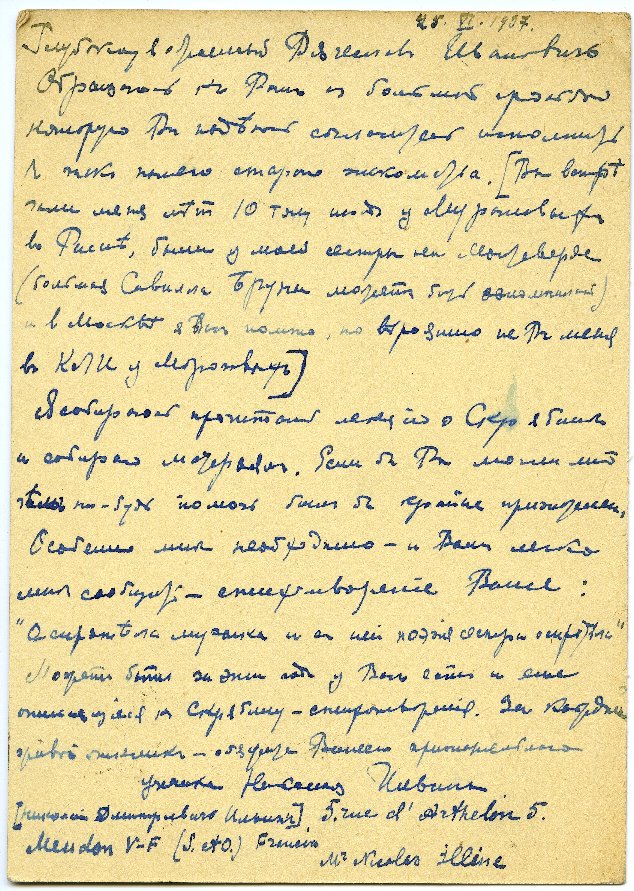 25. VI. 1937.
Глубокоуважаемый Вячеслав Иванович
Обращаюсь к Вамъ съ большой просьбой
которую Вы надѣюсь согласитесь исполнить
старого знакомства. [Вы встрѣ
чали меня лѣтъ 10 тому назадъ у Муромцевыхъ
въ Римѣ, были у моей сестры на Монтеверде
(большая Савилла можетъ быть
и въ Москвѣ я Васъ помню, но не Вы меня
въ у Морозовыхъ]
Я собираюсь прочитать лекцію о Скрябинѣ
и собираю матерьялъ. Если бъ Вы могли мнѣ
чѣмъ ни-будь помочь былъ бъ крайне признателенъ.
Особенно мнѣ необходимо – и Вамъ легко
мнѣ сообщить – стихотворение Ваше:
"Осиротѣла музыка и съ ней поэзія сестра осиротѣла"
Можетъ быть за эти годы у Васъ есть и еще
относящіеся къ Скрябину – стихотворенія. За каждый
Вашего признательного
Николая Ильина
[Николай Дмитріевичъ Ильинъ] 5. rue d'Arthelon 5.
Meudon V–F (S. et O.) Francia
Mr Nicolas Iline